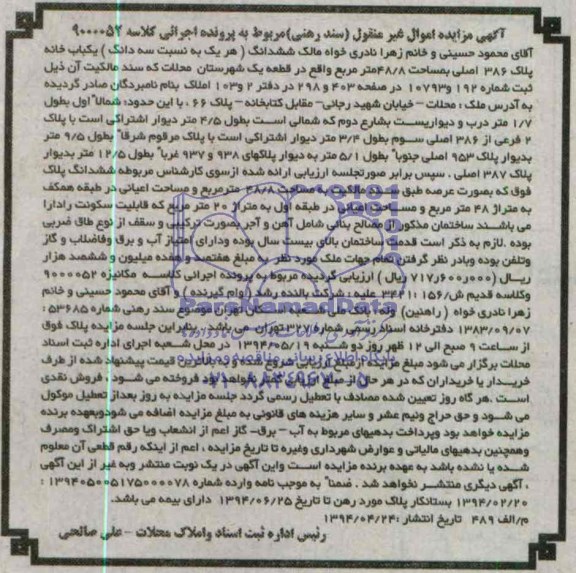 آگهی مزایده اموال غیر منقول (سند رهنی)مربوط به پرونده اجرائی کلاسه ۹۰۰۰۰۵۲
آقای محمود حسینی و خانم زهرا نادری خواه مالک ششدانگ ( هر یک به نسبت سه دانگ ) یکباب خانه
پلاک ۳۸۶ اصلی بمساحت ۴۸/۸متر مربع واقع در قطعه یک شهرستان محلات که سند مالکیت آن ذیل
ثبت شماره ۱۹۲ و ۱۰۷۹۳ در صفحه ۴۰۳ و ۲۹۸ در دفتر ۲ و ۱۰۳ املاک بنام نامبردگان صادر گردیده
به آدرس ملک : محلات - خیابان شهید رجائی- مقابل کتابخانه - پلاک ۶۶ ، با این حدود: شمالا" اول بطول
۱/۷ متر درب و دیواریست بشارع دوم که شمالی است بطول ۴/۵ متر دیوار اشتراکی است با پلاک
۲ فرعی از ۳۸۶ اصلی سوم بطول ۳/۴ متر دیوار اشتراکی است با پلاک مرقوم شرقا" بطول ۹/۵ متر
بدیوار پلاک ۹۵۳ اصلی جنوبا" بطول ۵/۱ متر به دیوار پلاکهای ۹۳۸ و ۹۳۷ غربا" بطول ۱۲/۵ متر بدیوار
پلاک ۳۸۷ اصلی . سپس برابر صورتجلسه ارزیابی ارائه شده ازسوی کارشناس مربوطه ششدانگ پلاک
فوق که بصورت عرصه طبق سند مالکیت به مساحت ۴۸/۸ مترمربع و مساحت اعیانی در طبقه همکف
به متراژ ۴۸ متر مربع و مساحت اعیانی در طبقه اول به متراژ ۲۰ متر مربع که قابلیت سکونت رادارا
می باشند ساختمان مذکور از مصالح بنائی شامل آهن و آجر بصورت ترکیبی و سقف از نوع طاق ضربی
بوده .لازم به ذکر است قدمت ساختمان بالای بیست سال بوده ودارای امتیاز آب و برق وفاضلاب و گاز
وتلفن بوده وبادر نظر گرفتن تمام جهات ملک مورد نظر به مبلغ هفتصد و هفده میلیون و ششصد هزار
ریال (۷۱۷٫۶۰۰٫۰۰۰ ریال ) ارزیابی گردیده مربوط به پرونده اجرائی کلاسه مکانیزه ۹۰۰۰۰۵۲
وکلاسه قدیم ش/۱۵۶ علیه : شرکت بالنده رشد (وام گیرنده ) و آقای محمود حسینی و خانم
زهرا نادری خواه ( راهنین ) وله: بانک ملی شعبه تهران موضوع سند رهنی شماره ۵۳۶۸۵ :
۱۳۸۳/۰۹/۰۷ دفترخانه اسناد رسمی شماره ۳۲۷ تهران می باشد . بنابراین جلسه مزایده پلاک فوق
از ساعت ۹ صبح الی ۱۲ ظهر روز دو شنبه ۱۳۹۴/۰۵/۱۹ در محل شعبه اجرای اداره ثبت اسناد
محلات برگزار می شود مبلغ مزایده از مبلغ ارزیابی شروع شده و به بالاترین قیمت پیشنهاد شده از طرف
خریدار یا خریداران که در هر حال از مبلغ ارزیابی کمتر نخواهد بود فروخته می شود ، فروش نقدی
است .هر گاه روز تعیین شده مصادف با تعطیل رسمی گردد جلسه مزایده به روز بعداز تعطیل موکول
می شود و حق حراج ونیم عشر و سایر هزینه های قانونی به مبلغ مزایده اضافه می شودوبعهده برنده
مزایده خواهد بود وپرداخت بدهیهای مربوط به آب – برق- گاز اعم از انشعاب ویا حق اشتراک ومصرف
وهمچنین بدهیهای مالیاتی و عوارض شهرداری وغیره تا تاریخ مزایده ، اعم از اینکه رقم قطعی آن معلوم
شده یا نشده باشد به عهده برنده مزایده است واین آگهی در یک نوبت منتشر وبه غیر از این آگهی
، آگهی دیگری منتشر نخواهد شد . ضمنا" به موجب نامه وارده شماره ۱۳۹۴۰۵۰۰۵۱۷۵۰۰۰۰۷۸ :
۱۳۹۴/۰۲/۲۰ بستانکار پلاک مورد رهن تا تاریخ ۱۳۹۴/۰۶/۲۵ دارای بیمه می باشد.
م/الف ۴۸۹ تاریخ انتشار :۱۳۹۴/۰۴/۲۴
رئیس اداره ثبت اسناد واملاک محلات - علی صالحی
ParsNamadData
پایگاه اطلاع رسانی مناقصه و مزایده